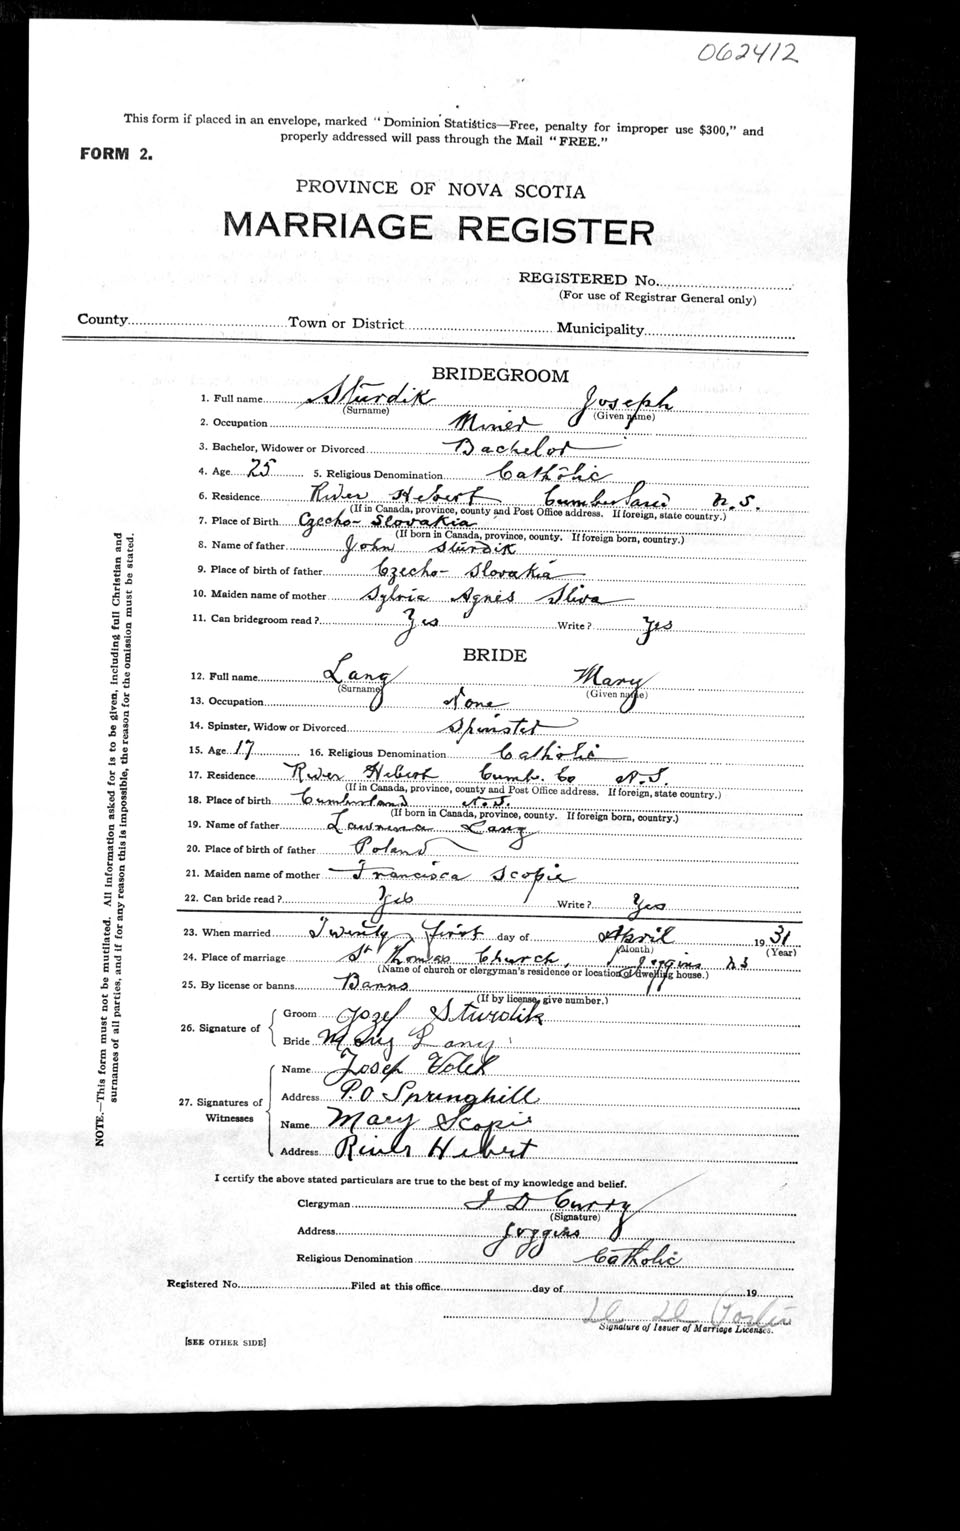 062412
This form if placed in an envelope, marked "Dominion Statistics—Free, penalty for improper use $300," and
properly addressed will pass through the Mail "FREE."
FORM 2.
PROVINCE OF NOVA SCOTIA
MARRIAGE REGISTER
REGISTERED No.
(For use of Registrar General only)
County Town or District Municipality
BRIDEGROOM
1. Full name Sturdik Joseph
(Surname) (Given name)
2. Occupation Miner
3. Bachelor, Widower or Divorced Bachelor
4. Age 25 5. Religious Denomination Catholic
6. Residence River Hebert Cumberland N.S.
(If in Canada, province, county and Post Office address. If foreign, state country.)
7. Place of Birth Czecho-Slovakia
(If born in Canada, province, county. If foreign born, country.)
8. Name of father John Sturdik
9. Place of birth of father Czecho-Slovakia
10. Maiden name of mother Sylvia Agnes Sliva
11. Can bridegroom read? Yes Write? Yes
BRIDE
12. Full name Lang Mary
(Surname) (Given name)
13. Occupation None
14. Spinster, Widow or Divorced Spinster
15. Age 17 16. Religious Denomination Catholic
17. Residence River Hebert Cumb. Co N.S.
(If in Canada, province, county and Post Office address. If foreign, state country.)
18. Place of birth Cumberland N.S.
(If born in Canada, province, county. If foreign born, country.)
19. Name of father Lang
20. Place of birth of father Poland
21. Maiden name of mother Francisca Scopie
22. Can bride read? Yes Write? Yes
23. When married Twenty first day of April 1931
(Month) (Year)
24. Place of marriage St Thomas Church, Joggins NS
(Name of church or clergyman's residence or location of dwelling house.)
25. By license or banns Banns
(If by license, give number.)
26. Signature of
Groom Jozef Sturdik
Bride Mary Lang
27. Signatures of Witnesses
Name Josef
Address P.O Springhill
Name Mary Scopie
Address River Hebert
I certify the above stated particulars are true to the best of my knowledge and belief.
Clergyman J D Curry
(Signature)
Address Joggins
Religious Denomination Catholic
Registered No. Filed at this office day of 19
Signature of Issuer of Marriage Licenses.
[SEE OTHER SIDE]
NOTE.—This form must not be mutilated. All information asked for is to be given, including full Christian and
surnames of all parties, and if for any reason this is impossible, the reason for the omission must be stated.